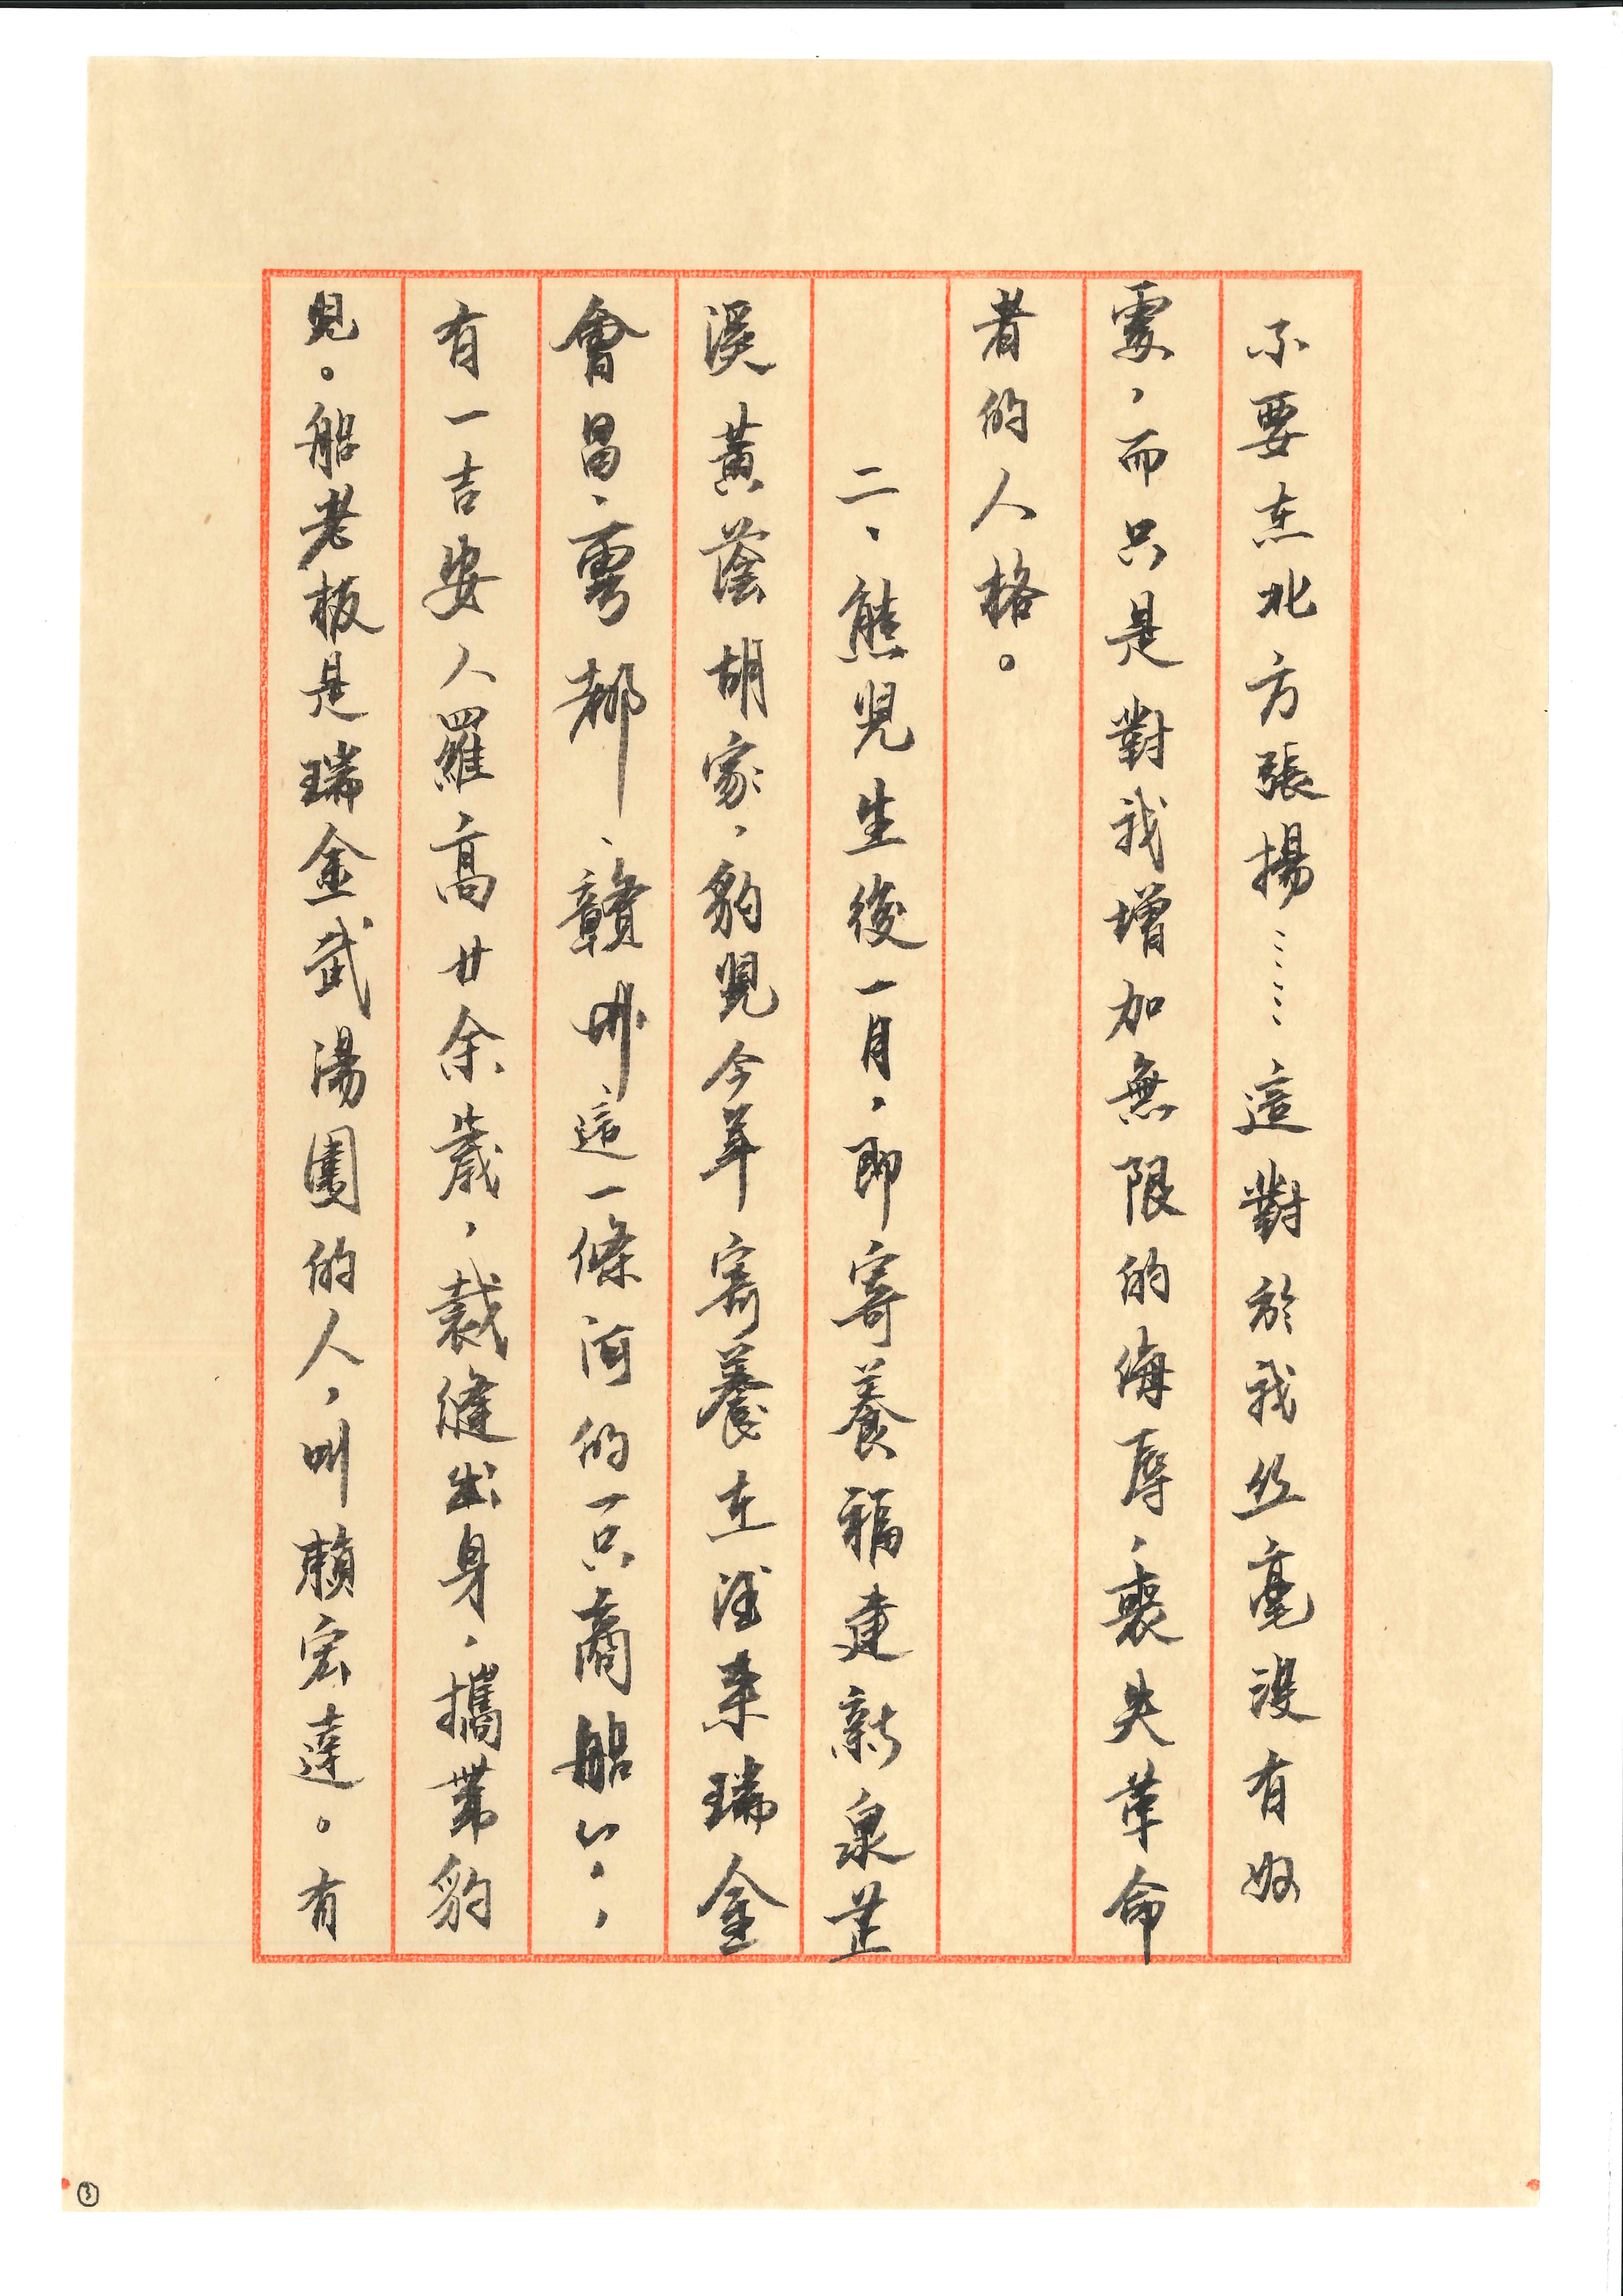 不要在北方張揚……這對於我丝毫沒有好
處，而只是對我增加無限的侮辱，喪失革命
者的人格。
二、熊児生後一月，即寄養福建新泉芷
溪黃蔭胡家，豹児今年寄養在往來瑞金
會昌、雩都、贛州這一條河的一只商船上，
有一吉安人羅高廿余歲，裁縫出身，攜帶豹
児。船老板是瑞金武湯團的人，叫賴宏達。有
③